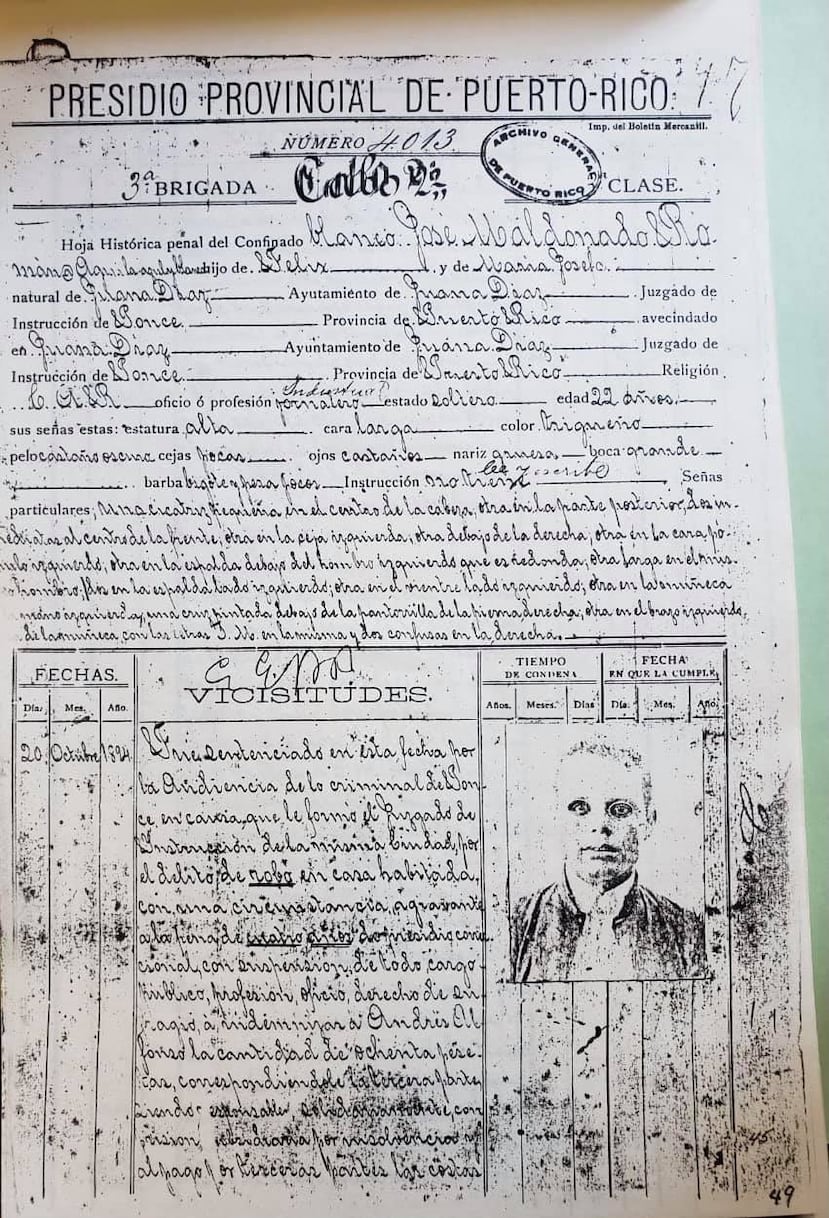 PRESIDIO PROVINCIAL DE PUERTO-RICO. 47
Imp. del Boletín Mercantil.
NÚMERO 4013
ARCHIVO GENERAL DE PUERTO RICO
3ª BRIGADA Calle 2ª CLASE.
Hoja Histórica penal del Confinado blanco. José Maldonado Ro-
mán @ Aguila hijo de Felix y de Maria Josefa
natural de Juana Diaz Ayuntamiento de Juana Diaz Juzgado de
Instrucción de Ponce Provincia de Puerto Rico avecindado
en Juana Diaz Ayuntamiento de Juana Diaz Juzgado de
Instrucción de Ponce Provincia de Puerto Rico Religión
C. A. R. oficio ó profesión jornalero estado soltero edad 22 años.
sus señas estas: estatura alta cara larga color trigueño
pelo castaño oscuro cejas pocas ojos castaños nariz gruesa boca grande
barba bigote y pera pocos Instrucción no tiene Lee y escribe Señas
particulares; Una cicatriz pequeña en el centro de la cabeza, otra en la parte posterior, dos in-
mediatas al centro de la frente, otra en la ceja izquierda, otra debajo de la derecha, otra en la cara
izquierdo, otra en la espalda debajo del hombro izquierdo que es redonda, otra larga en el mis-
mo hombro, dos en la espalda lado izquierdo; otra en el vientre lado izquierdo; otra en la muñeca
mano izquierda, una cruz pintada debajo de la pantorrilla de la pierna derecha, otra en el brazo izquierdo
de la muñeca, con las letras J. M. en la misma y dos confusas en la derecha.
FECHAS.
VICISITUDES.
TIEMPO DE CONDENA
FECHA EN QUE LA CUMPLE
Día. Mes. Año. Años. Meses. Días Día. Mes. Año.
20 Octubre 1894 Fué sentenciado en esta fecha por
la Audiencia de lo criminal de Pon-
ce, en causa que le formó el Juzgado de
Instrucción de la misma Ciudad, por
el delito de robo en casa habitada,
con una circunstancia agravante
a la pena de cuatro años de presidio correc-
cional, con suspensión de todo cargo
público, profesión, oficio, derecho de su-
fragio, á indemnizar á Andrés Al-
fonso la cantidad de ochenta pese-
tas, correspondiendole la tercera parte
siendo responsable solidariamente, con
prision subsidiaria por insolvencia y
al pago por terceras partes las costas
49